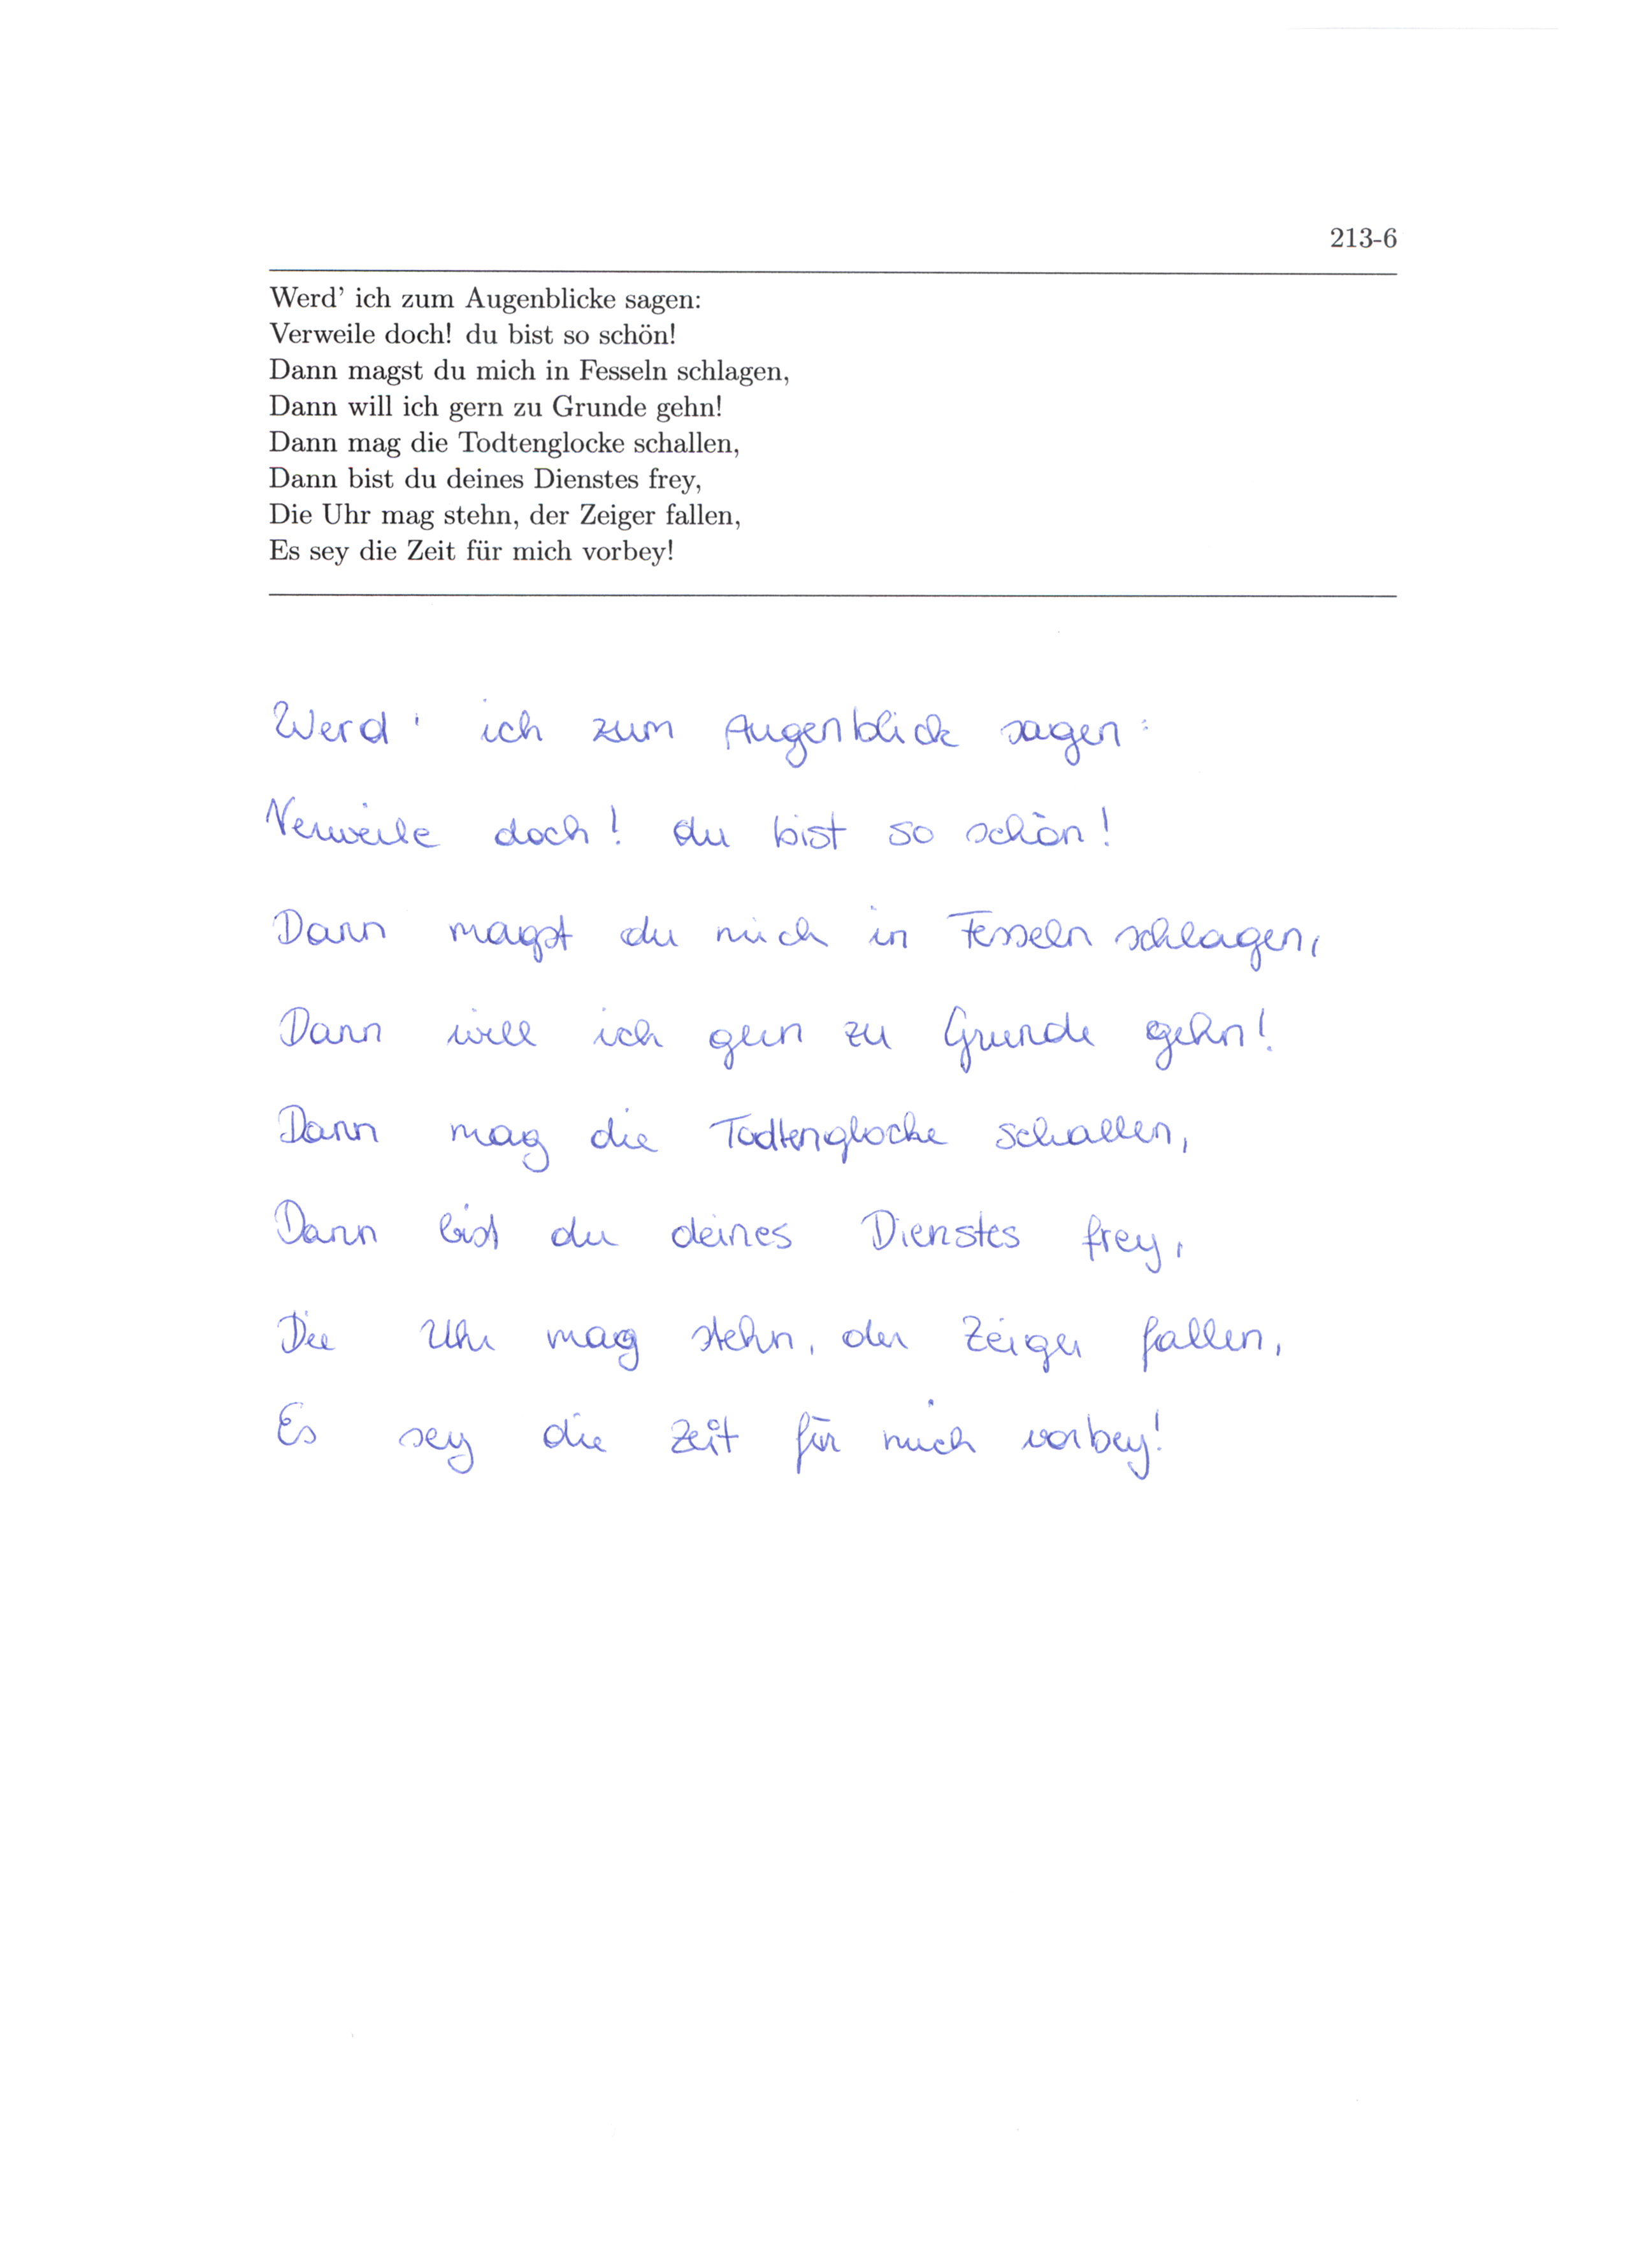 213-6
Werd’ ich zum Augenblicke sagen:
Verweile doch! du bist so schön!
Dann magst du mich in Fesseln schlagen,
Dann will ich gern zu Grunde gehn!
Dann mag die Todtenglocke schallen,
Dann bist du deines Dienstes frey,
Die Uhr mag stehn, der Zeiger fallen,
Es sey die Zeit für mich vorbey!
Werd' ich zum Augenblick sagen:
Verweile doch! du bist so schön!
Dann magst du mich in Fesseln schlagen,
Dann will ich gern zu Grunde gehn!
Dann mag die Todtenglocke schallen,
Dann bist du deines Dienstes frey,
Die Uhr mag stehn, der Zeiger fallen,
Es sey die Zeit für mich vorbey!